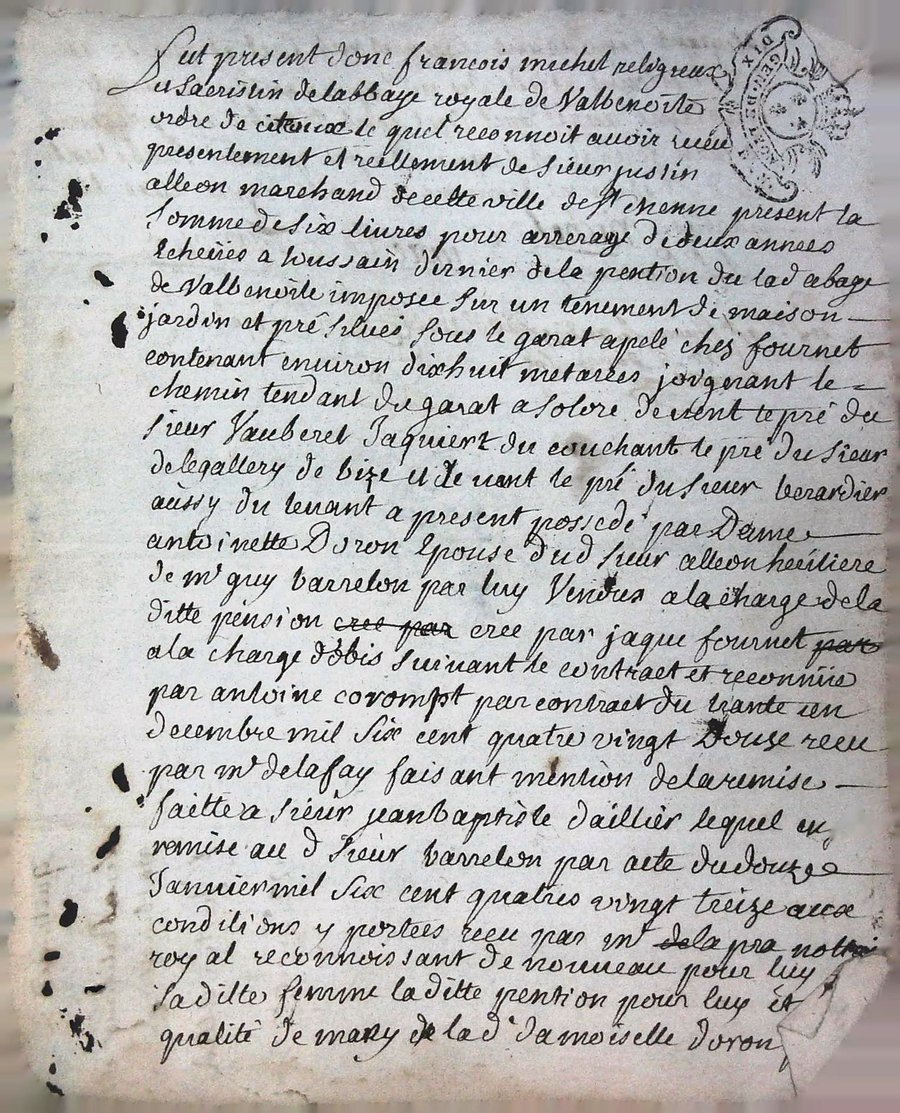 fut present donc francois michel religieux
et sacristin delabbaye royale de Valbenoite
ordre de citeaux le quel reconnoit avoir receu
presentement et reellement de sieur justin
alleon marchand decette ville de St etienne present la
somme de six livres pour arrerage de deux années
Echeües a toussain dernier dela pention du lad abaye
de Valbenoite imposée sur un tenement de maison
jardin et pré situés sous le garat apelé chez fournet
contenant environ dixhuit metarées joignant le
chemin tendant du garat a solore de vent le pré du
sieur Vauberet Jaquiert du couchant le pré du sieur
delegallery de bize et de vant le pré du sieur berardier
aussy du levant a present possedé par Dame
antoinette Doron Epouse dud sieur alleon heritiere
de mr guy barrelon par luy Vendus ala charge dela
ditte pension cree par cree par jaque fournet par
ala charge dobis suivant le contract et reconnüe
par antoine corompt par contract du trante un
decembre mil six cent quatre vingt Douse receu
par mr delafay faisant mention delaremise
faitte a sieur jeanbaptiste daillier lequel en
remise au d sieur barrelon par acte dudouze
Janvier mil six cent quatres vingt treize aux
conditions y portees receu par mr de lapra nottaire
royal reconnoissant de nouveau pour luy
saditte femme laditte pention pour luy et
qualité de mary de lad damoiselle doron
DIX